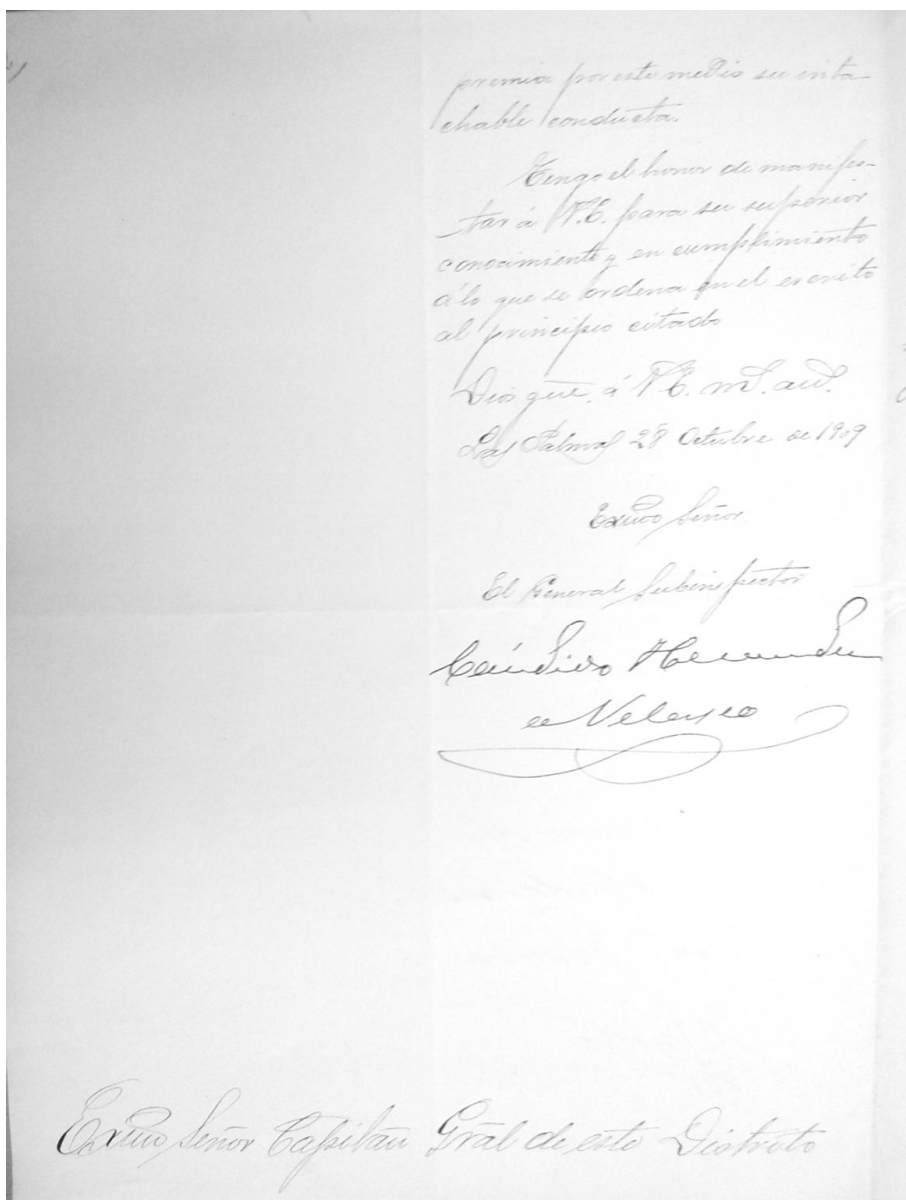 premia por este medio su inta-
chable conducta.
Tengo el honor de manifes-
tar á V.E. para su superior
conocimiento y en cumplimiento
á lo que se ordena en el escrito
al principio citado
Dios gue. á V.E. ms. as.
Las Palmas 28 Octubre de 1909
Exmo Señor
El General Subinspector
Cándido Hernandez
de Velasco
Exmo Señor Capitán Gral de este Distrito